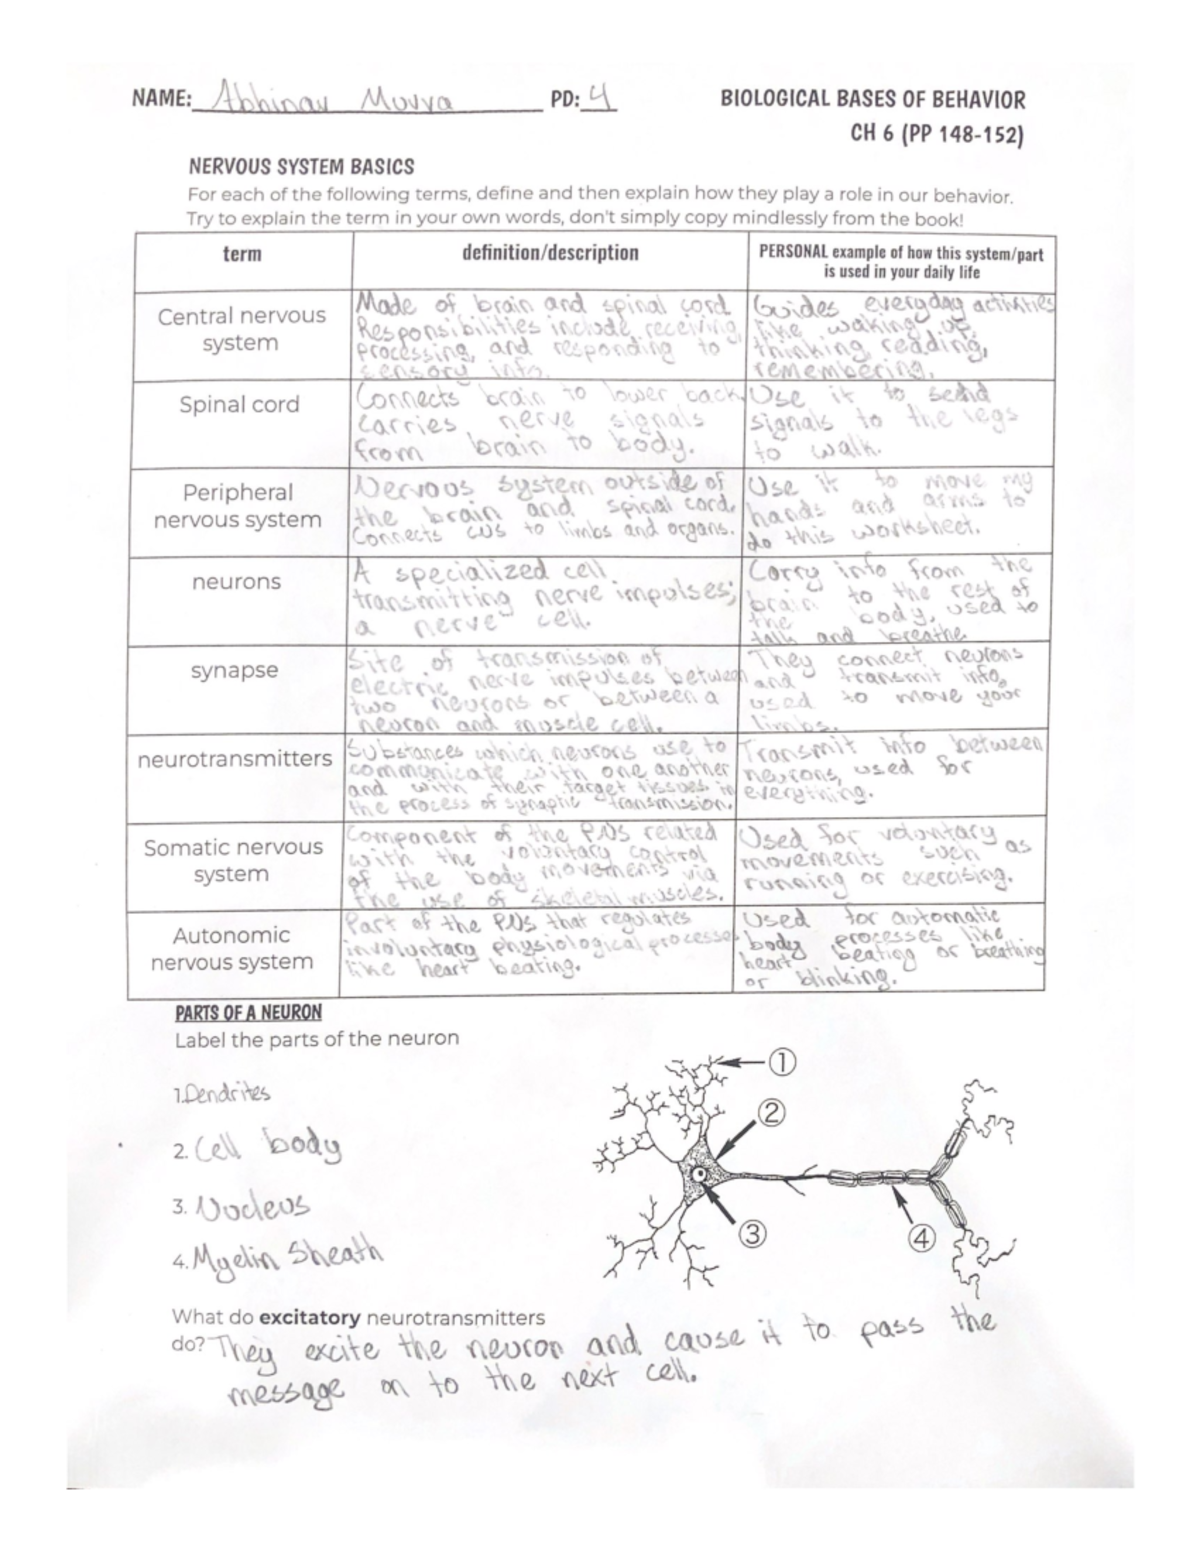 NAME: Abhinav Muvva PD: 4 BIOLOGICAL BASES OF BEHAVIOR
CH 6 (PP 148-152)
NERVOUS SYSTEM BASICS
For each of the following terms, define and then explain how they play a role in our behavior.
Try to explain the term in your own words, don't simply copy mindlessly from the book!
term
definition/description
PERSONAL example of how this system/part
is used in your daily life
Central nervous
system
Made of brain and spinal cord
Responsibilities include receiving,
processing, and responding to
sensory info.
Guides everyday activities
like waking up,
thinking, reading,
remembering.
Spinal cord
Connects brain to lower back,
carries nerve signals
from brain to body.
Use it to send
signals to the legs
to walk.
Peripheral
nervous system
Nervous system outside of
the brain and spinal cord.
Connects CNS to limbs and organs.
Use it to move my
hands and arms to
do this worksheet.
neurons
A specialized cell
transmitting nerve impulses;
a nerve cell.
Carry info from the
brain to the rest of
the body, used to
talk and breathe
synapse
Site of transmission of
electric nerve impulses between
two neurons or between a
neuron and muscle cell.
They connect neurons
and transmit info,
used to move your
limbs.
neurotransmitters
Substances which neurons use to
communicate with one another
and with their target tissues in
the process of synaptic transmission.
Transmit info between
neurons, used for
everything.
Somatic nervous
system
Component of the PNS related
with the voluntary control
of the body movements via
the use of skeletal muscles.
Used for voluntary
movements such as
running or exercising.
Autonomic
nervous system
Part of the PNS that regulates
involuntary physiological processes
like heart beating.
Used for automatic
body processes like
heart beating or breathing
or blinking.
PARTS OF A NEURON
Label the parts of the neuron
1. Dendrites
2. Cell body
3. Nucleus
4. Myelin Sheath
1
2
3
4
What do excitatory neurotransmitters
do? They excite the neuron and cause it to pass the
message on to the next cell.